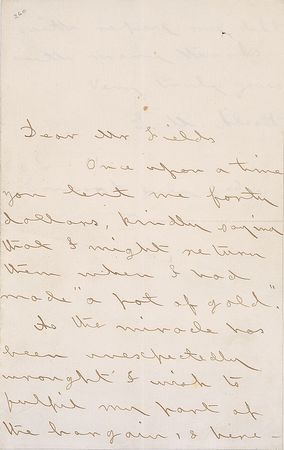 Dear Mr Fields
Once upon a time
you lent me forty
dollars, kindly saying
that I might return
them when I had
made "a pot of gold".
As the miracle has
been unexpectedly
wrought I wish to
fulfil my part of
the bargain, & here-